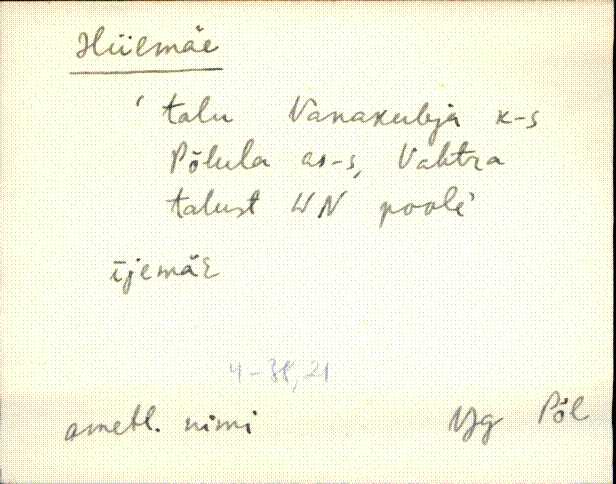 Hiiemäe
' talu Vanakubja k-s
Põlula as-s, Vahtra
talust WN poole'
ījemäε
4-38, 21
ametl. nimi VJg Põl